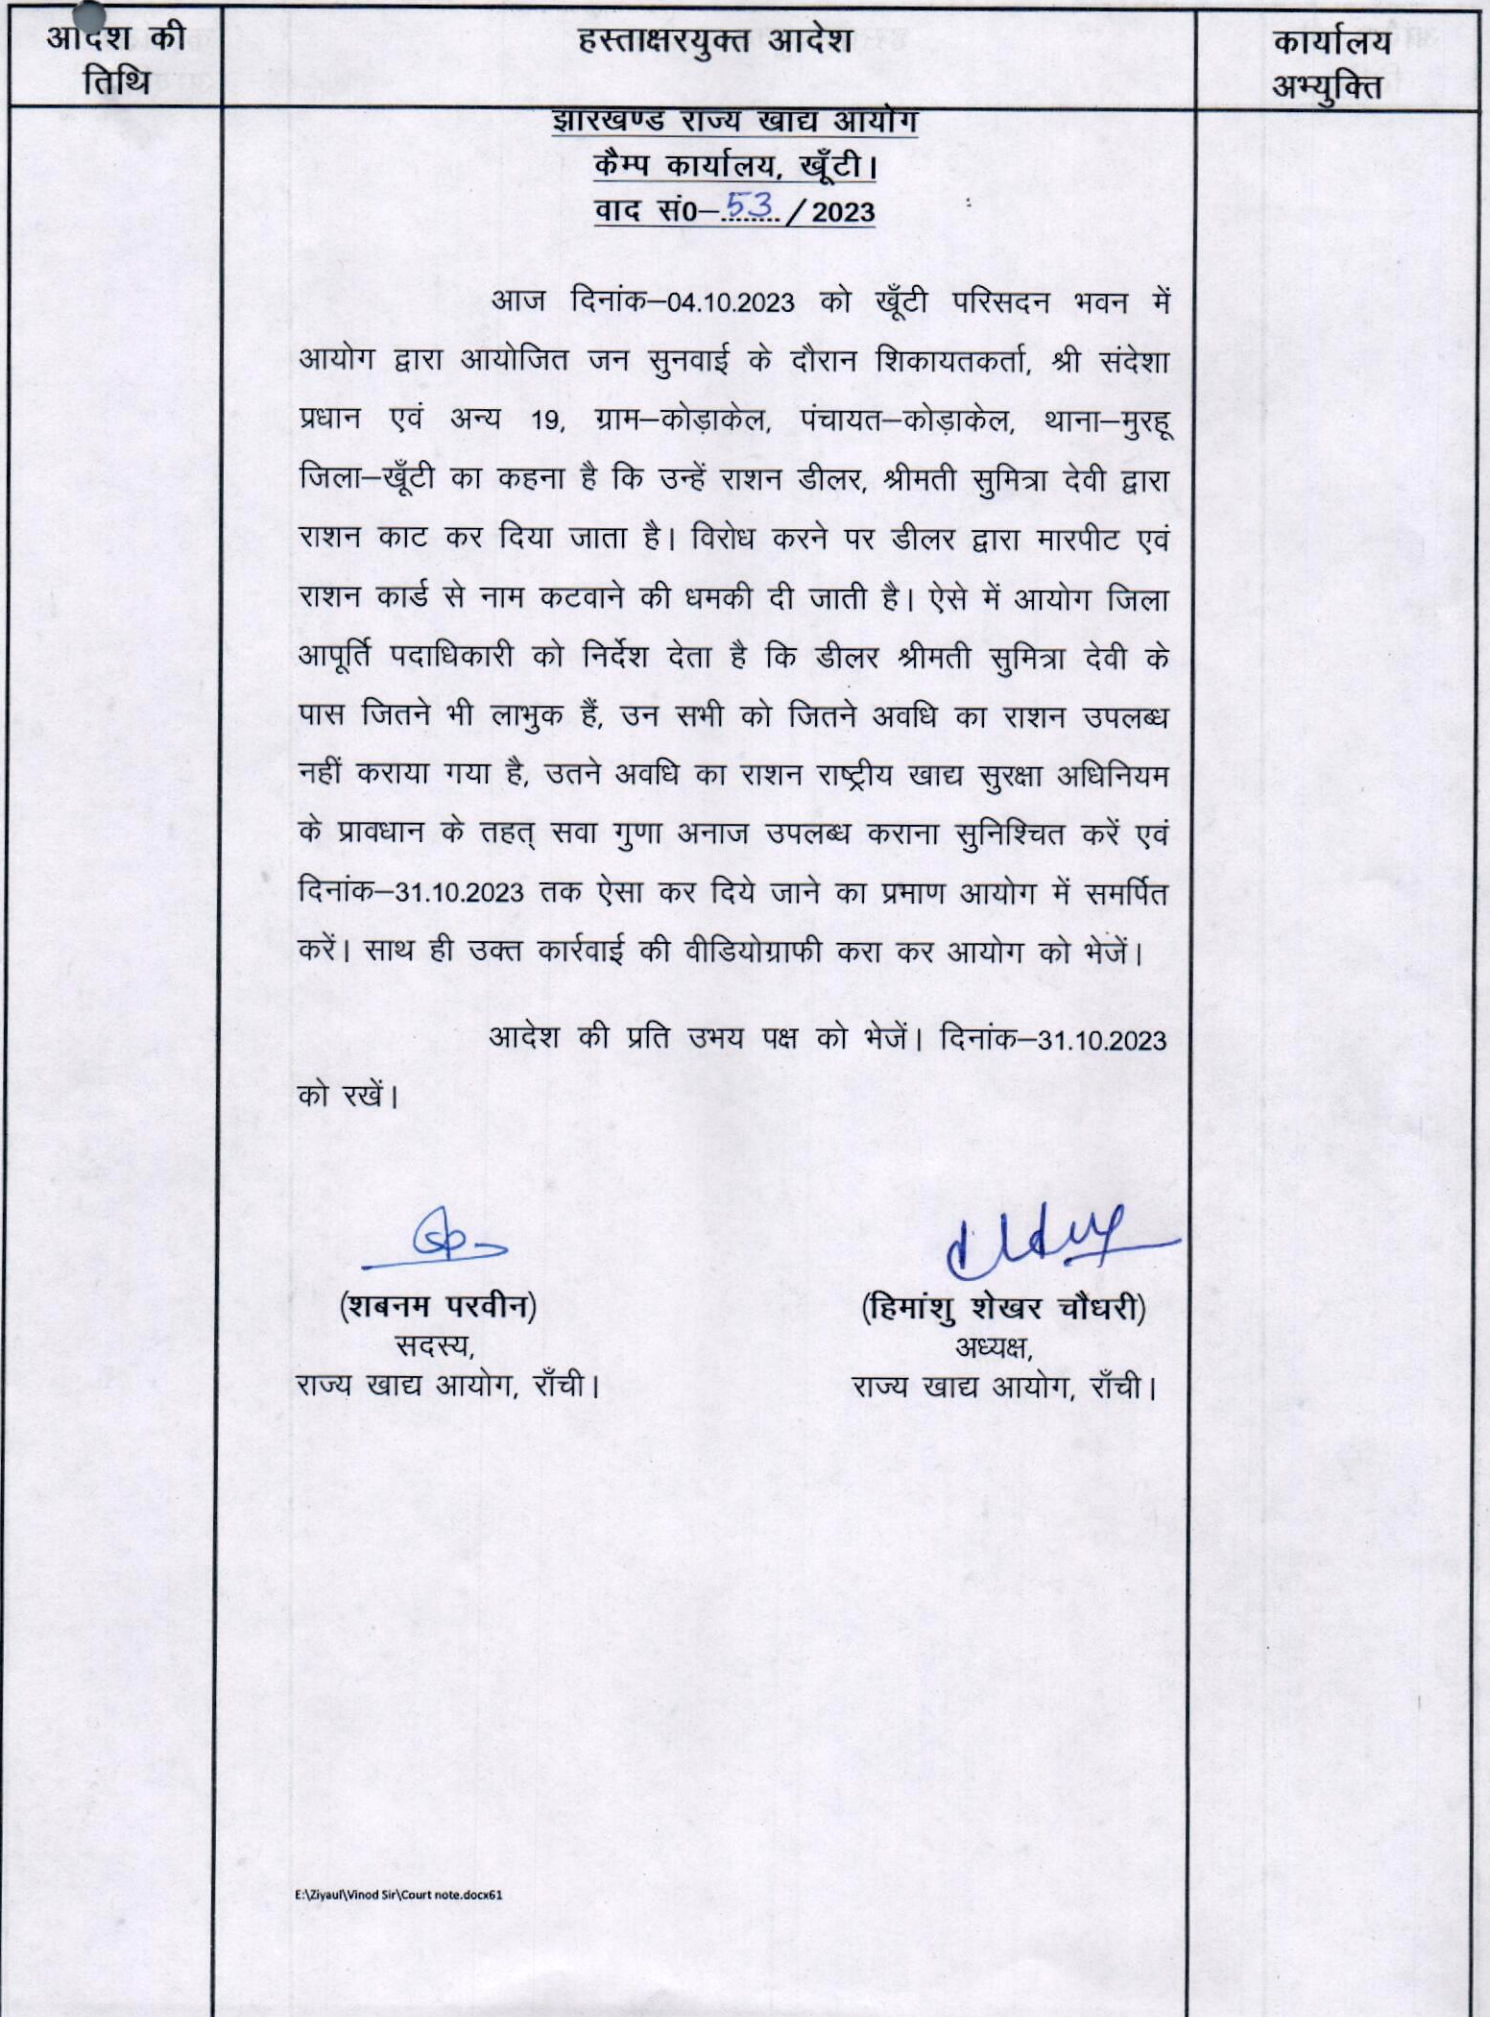 आदेश की
तिथि
हस्ताक्षरयुक्त आदेश
कार्यालय
अभ्युक्ति
झारखण्ड राज्य खाद्य आयोग
कैम्प कार्यालय, खूँटी।
वाद सं0–53/2023
आज दिनांक–04.10.2023 को खूँटी परिसदन भवन में
आयोग द्वारा आयोजित जन सुनवाई के दौरान शिकायतकर्ता, श्री संदेशा
प्रधान एवं अन्य 19, ग्राम–कोड़ाकेल, पंचायत–कोड़ाकेल, थाना–मुरहू
जिला–खूँटी का कहना है कि उन्हें राशन डीलर, श्रीमती सुमित्रा देवी द्वारा
राशन काट कर दिया जाता है। विरोध करने पर डीलर द्वारा मारपीट एवं
राशन कार्ड से नाम कटवाने की धमकी दी जाती है। ऐसे में आयोग जिला
आपूर्ति पदाधिकारी को निर्देश देता है कि डीलर श्रीमती सुमित्रा देवी के
पास जितने भी लाभुक हैं, उन सभी को जितने अवधि का राशन उपलब्ध
नहीं कराया गया है, उतने अवधि का राशन राष्ट्रीय खाद्य सुरक्षा अधिनियम
के प्रावधान के तहत् सवा गुणा अनाज उपलब्ध कराना सुनिश्चित करें एवं
दिनांक–31.10.2023 तक ऐसा कर दिये जाने का प्रमाण आयोग में समर्पित
करें। साथ ही उक्त कार्रवाई की वीडियोग्राफी करा कर आयोग को भेजें।
आदेश की प्रति उभय पक्ष को भेजें। दिनांक–31.10.2023
को रखें।
(शबनम परवीन)
सदस्य,
राज्य खाद्य आयोग, राँची।
(हिमांशु शेखर चौधरी)
अध्यक्ष,
राज्य खाद्य आयोग, राँची।
E:\Ziyaul\Vinod Sir\Court note.docx61